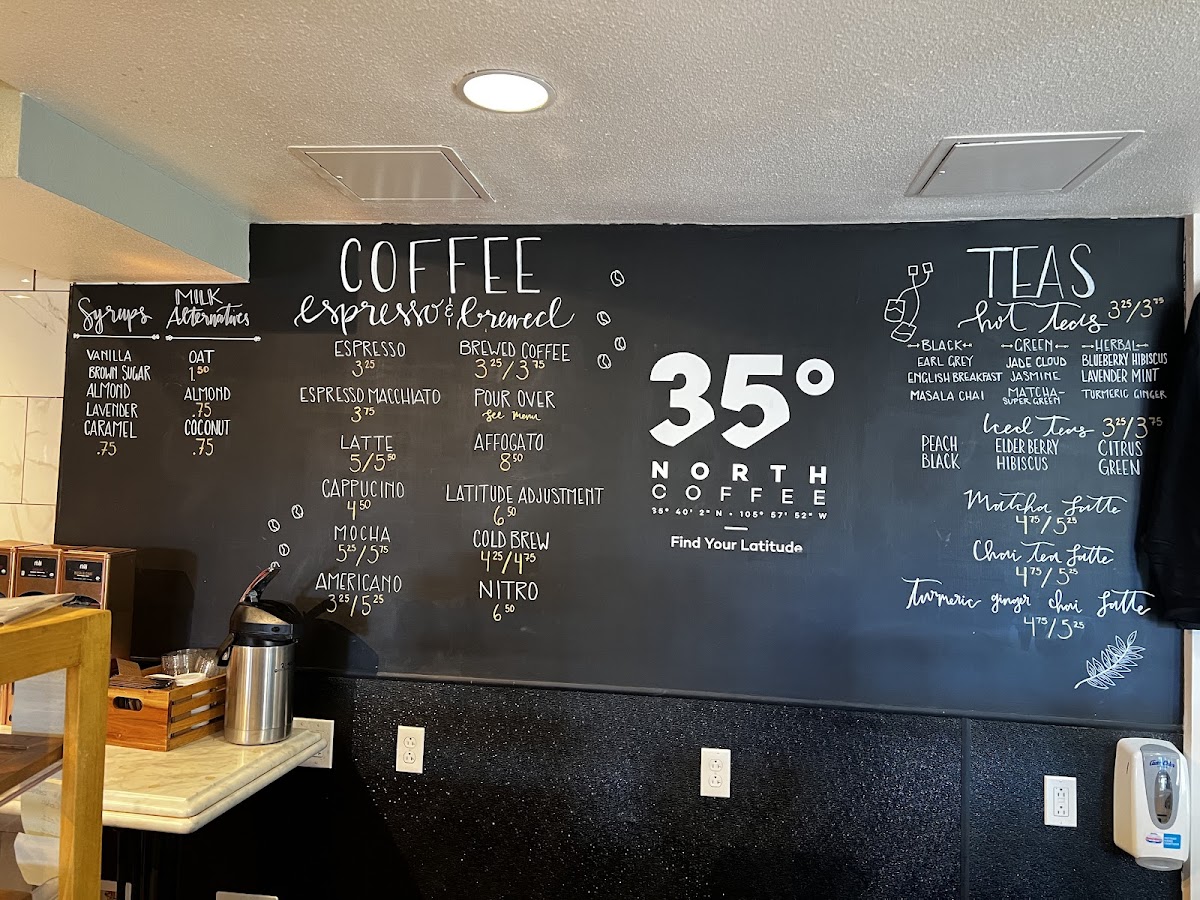 Syrups
VANILLA
BROWN SUGAR
ALMOND
LAVENDER
CARAMEL
.75
MILK
Alternatives
OAT
1.50
ALMOND
.75
COCONUT
.75
COFFEE
espresso & brewed
ESPRESSO
3 25
ESPRESSO MACCHIATO
3 75
LATTE
5/5 50
CAPPUCINO
4 50
MOCHA
5 25/5 75
AMERICANO
3 25/5 25
BREWED COFFEE
3 25/3 75
POUR OVER
see menu
AFFOGATO
8 50
LATITUDE ADJUSTMENT
6 50
COLD BREW
4 25/4 75
NITRO
6 50
35°
NORTH
COFFEE
36° 40' 2" N • 105° 57' 52" W
Find Your Latitude
TEAS
hot teas 3 25/3 75
BLACK
EARL GREY
ENGLISH BREAKFAST
MASALA CHAI
GREEN
JADE CLOUD
JASMINE
MATCHA-
SUPER GREEN
HERBAL
BLUEBERRY HIBISCUS
LAVENDER MINT
TURMERIC GINGER
Iced teas 3 25/3 75
PEACH
BLACK
ELDERBERRY
HIBISCUS
CITRUS
GREEN
Matcha Latte
4 75/5 25
Chai Tea Latte
4 75/5 25
Turmeric ginger chai Latte
4 75/5 25